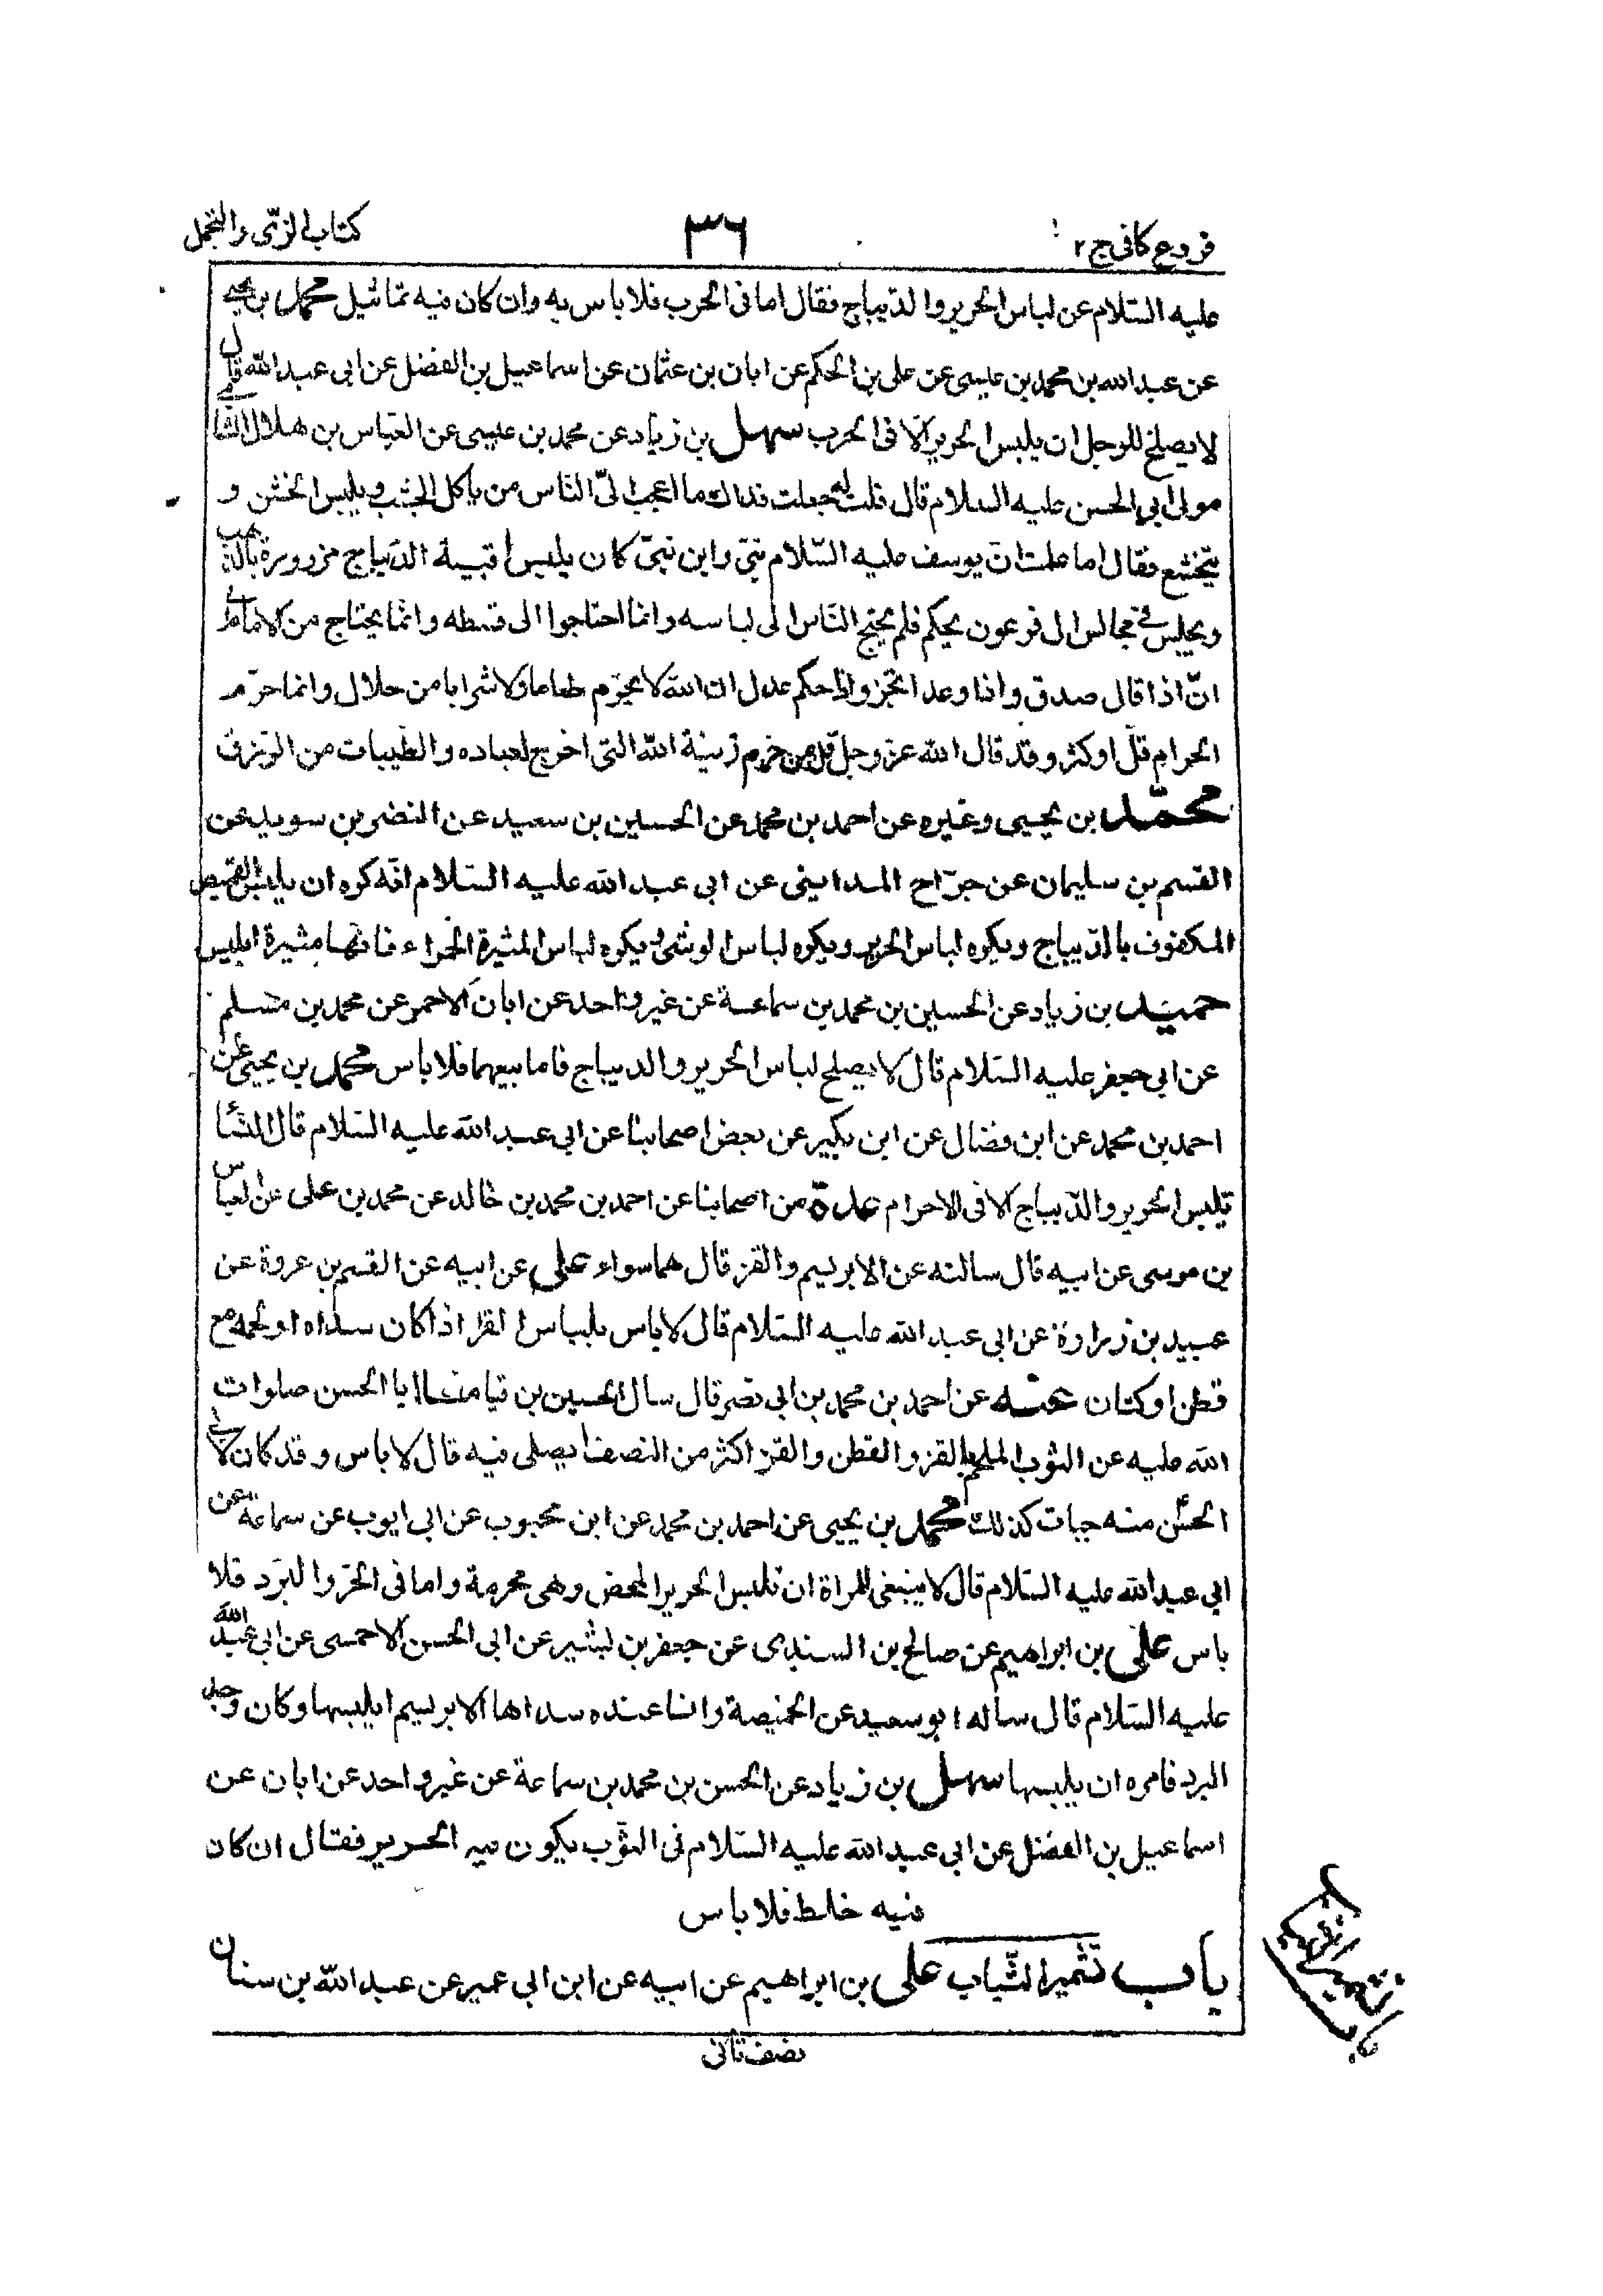 فروع كافى ج ٢
٣٦
كتاب الزّى والتجمل
عليه السّلام عن لباس الحرير والدّيباج فقال اما فى الحرب فلا باس به وان كان فيه تماثيل محمد بن يحيى
عن عبد الله بن محمد بن عيسى عن على بن الحكم عن ابان بن عثمان عن اسماعيل بن الفضل عن ابى عبد الله قال
لا يصلح للرجل ان يلبس الحرير الّا فى الحرب سهل بن زياد عن محمد بن عيسى عن العبّاس بن هلال الشامى
مولى ابى الحسن عليه السلام قال قلت له جعلت فداك ما اعجب الىّ النّاس من ياكل الجشب ويلبس الخشن و
يتخشع فقال اما علمت انّ يوسف عليه السّلام نبىّ وابن نبىّ كان يلبس اقبية الدّيباج مزرورة بالذهب
ويجلس فى مجالس ال فرعون يحكم فلم يحتج النّاس الى لباسه وانما احتاجوا الى قسطه وانّما يحتاج من الامام فى
انّ اذا قال صدق واذا وعد انجز واذا حكم عدل ان الله لا يحرّم طعاما ولا شرابا من حلال وانما حرّم
الحرام قلّ او كثر وقد قال الله عزّ وجلّ قل من حرم زينة الله التى اخرج لعباده والطيبات من الرّزق
محمّد بن يحيى وغيره عن احمد بن محمد عن الحسين بن سعيد عن النضر بن سويد عن
القسم بن سليمان عن جرّاح المداينى عن ابى عبد الله عليه السّلام انّه كره ان يلبس القميص
المكفوف بالدّيباج ويكره لباس الحرير ويكره لباس الوشى ويكره لباس المثيرة الحمراء فانّها مثيرة ابليس
حميد بن زياد عن الحسين بن محمد بن سماعة عن غير واحد عن ابان الاحمر عن محمد بن مسلم
عن ابى جعفر عليه السّلام قال لا يصلح لباس الحرير والديباج فاما بيعهما فلا باس محمد بن يحيى عن
احمد بن محمد عن ابن فضال عن ابن بكير عن بعض اصحابنا عن ابى عبد الله عليه السّلام قال النساء
تلبس الحرير والدّيباج الا فى الاحرام عدة من اصحابنا عن احمد بن محمد بن خالد عن محمد بن على عن العباس
بن موسى عن ابيه قال سالته عن الابريسم والقز قال هما سواء على عن ابيه عن القسم بن عروة عن
عبيد بن زرارة عن ابى عبد الله عليه السّلام قال لا باس بلباس القز اذا كان سداه او لحمه مع
قطن او كتان عنه عن احمد بن محمد بن ابى نصر قال سال الحسين بن قياما ابا الحسن صلوات
الله عليه عن الثوب الملحم بالقز والقطن والقز اكثر من النصف ايصلى فيه قال لا باس وقد كان لابى
الحسن منه جبات كذلك محمد بن يحيى عن احمد بن محمد عن ابن محبوب عن ابى ايوب عن سماعة عن
ابى عبد الله عليه السّلام قال لا ينبغى للمراة ان تلبس الحرير المحض وهى محرمة واما فى الحرّ والبرد فلا
باس على بن ابراهيم عن صالح بن السندى عن جعفر بن بشير عن ابى الحسن الاحمسى عن ابى عبد الله
عليه السّلام قال ساله ابو سعيد عن الخميصة وانا عنده سداها الابريسم ايلبسها وكان وجد
البرد فامره ان يلبسها سهل بن زياد عن الحسن بن محمد بن سماعة عن غير واحد عن ابان عن
اسماعيل بن الفضل عن ابى عبد الله عليه السّلام فى الثّوب يكون فيه الحرير فقال ان كان
فيه خلط فلا باس
باب تشمير الثّياب على بن ابراهيم عن ابيه عن ابن ابى عمير عن عبد الله بن سنان
نصف ثانى